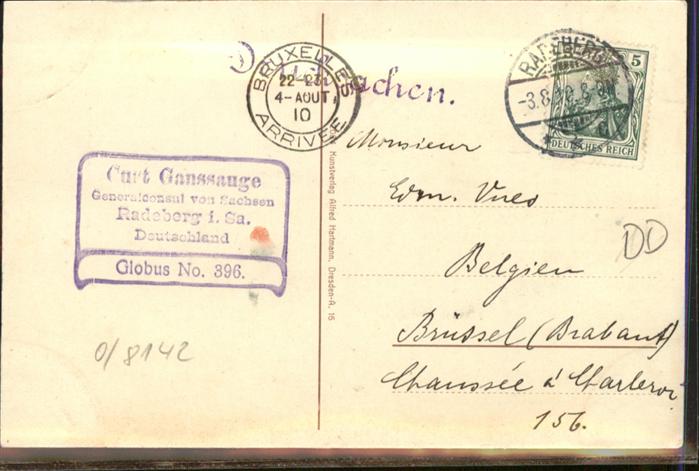 BRUXELLES
22-23
4-AOUT
10
ARRIVÉE
achen.
RADEBERG
-3.8.
5
DEUTSCHES REICH
Curt Ganssauge
Generalconsul von Sachsen
Radeberg i. Sa.
Deutschland
Globus No. 396.
Kunstverlag Alfred Hartmann, Dresden-A. 16
Monsieur
Edm.
Belgien
Brüssel (Brabant)
Chaussée à Charleroi
156.
DD
0/8142